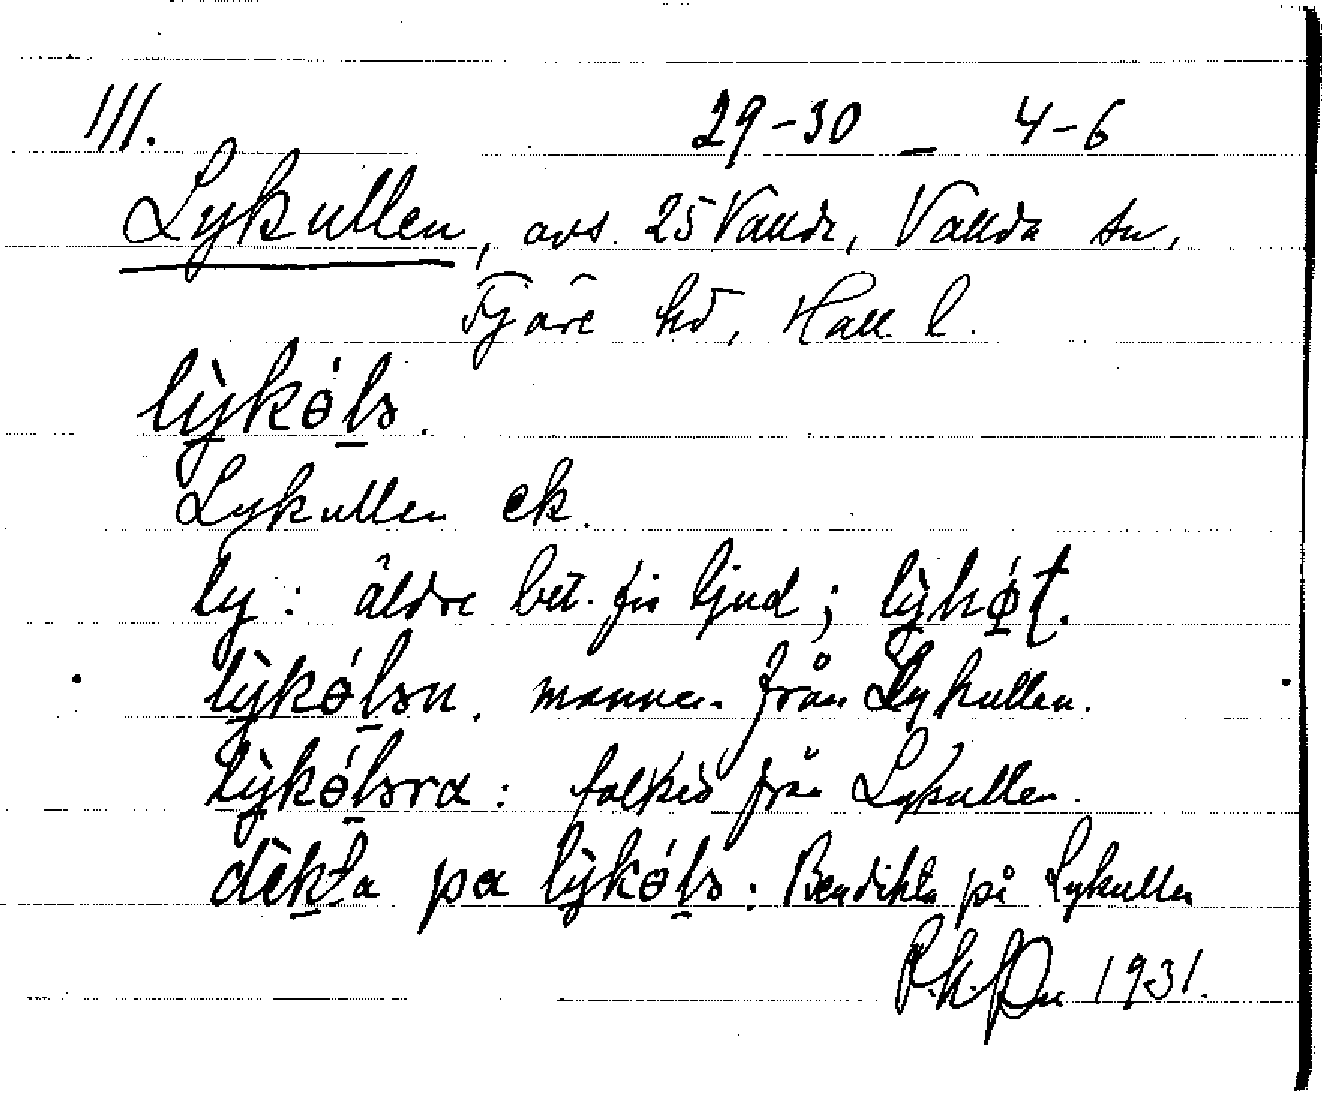 III. 29-30 – 4-6
Lykullen, avs. 25 Vallda, Vallda sn,
Fjäre hd, Hall. l.
lỳkǿls.
Lykullen ek.
ly: äldre bet. för ljud;
lỳkǿlsn. mannen från Lykullen.
lỳkǿlsra: folket från Lykullen.
dèkta pa lỳkǿls: Bendikta på Lykullen
1931.